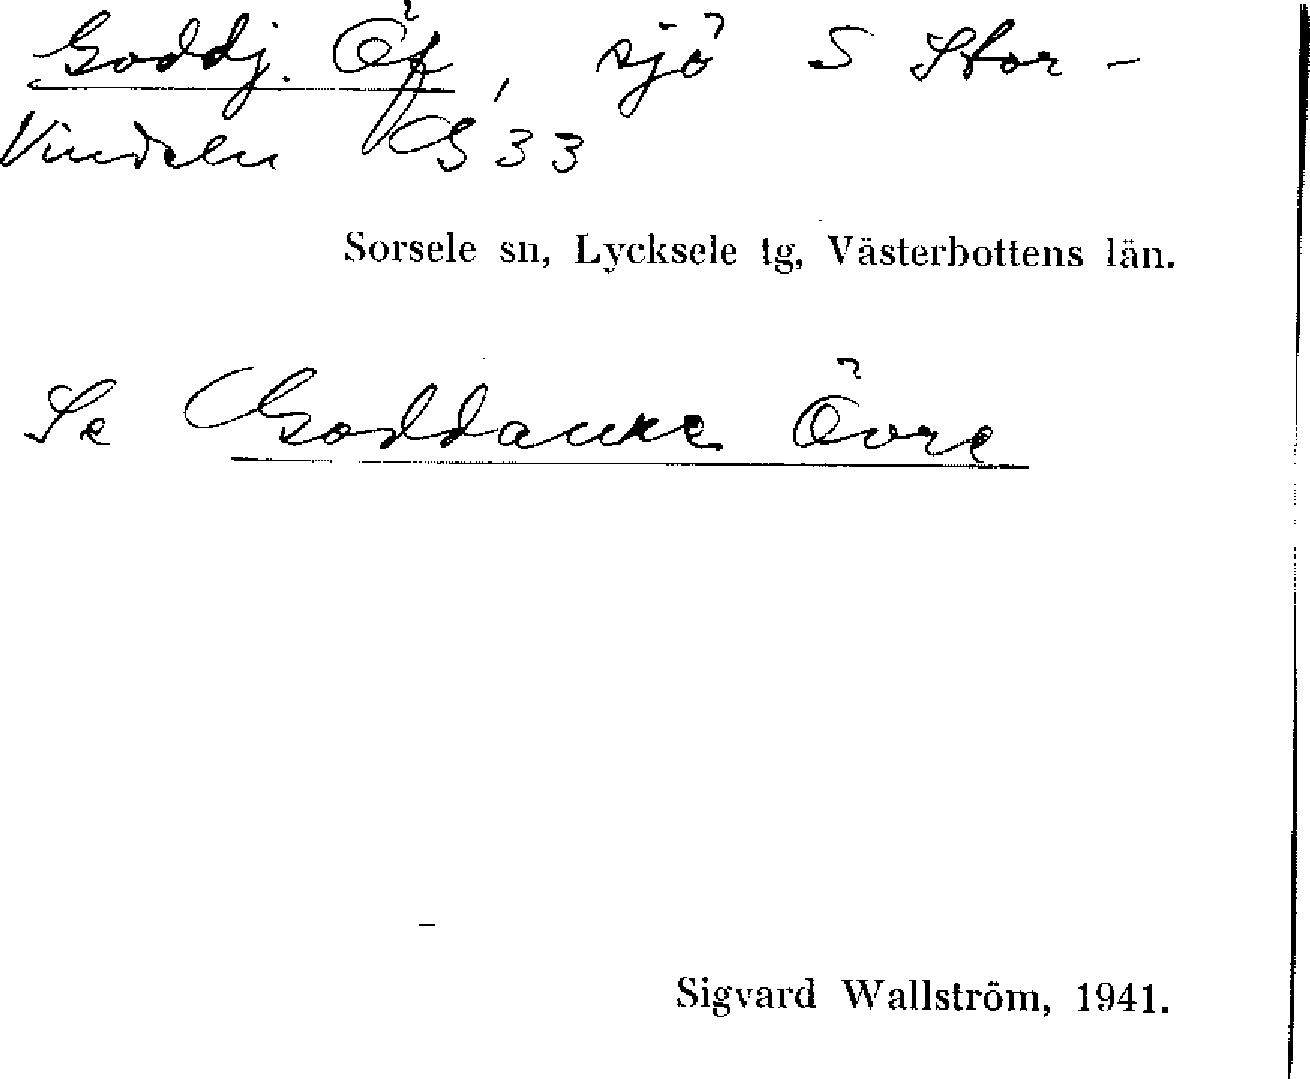 Goddj. Öf, sjö S Stor-
Vindeln GS 33
Sorsele sn, Lycksele tg, Västerbottens län.
Se Goddaure Övre
Sigvard Wallström, 1941.